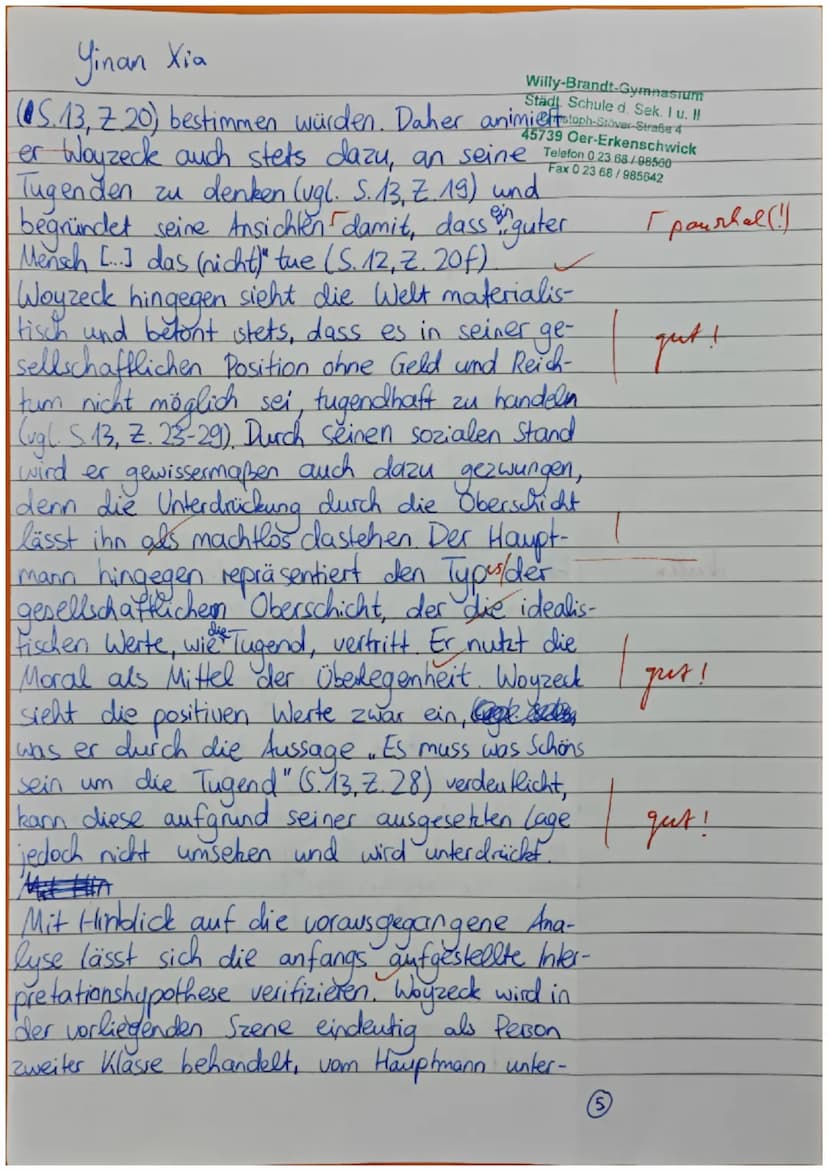 Yinan Xia
Willy-Brandt-Gymnasium
Städt. Schule d. Sek. I u. II
45739 Oer-Erkenschwick
Telefon 0 23 68 / 98560
Fax 0 23 68 / 985642
(S. 13, Z. 20) bestimmen würden. Daher animiert
er Woyzeck auch stets dazu, an seine
Tugenden zu denken (vgl. S. 13, Z. 19) und
begründet seine Ansichten damit, dass ein „guter
Γ pauschal (!)
Mensch [...] das (nicht)" tue (S. 12, Z. 20f).
Woyzeck hingegen sieht die Welt materialis-
tisch und betont stets, dass es in seiner ge-
gut!
sellschaftlichen Position ohne Geld und Reich-
tum nicht möglich sei, tugendhaft zu handeln
(vgl. S. 13, Z. 23-29). Durch seinen sozialen Stand
wird er gewissermaßen auch dazu gezwungen,
denn die Unterdrückung durch die Oberschicht
lässt ihn als machtlos dastehen. Der Haupt-
mann hingegen repräsentiert den Typus der
gesellschaftlichen Oberschicht, der die idealis-
tischen Werte, wie die Tugend, vertritt. Er nutzt die
Moral als Mittel der Überlegenheit. Woyzeck
gut!
sieht die positiven Werte zwar ein,
was er durch die Aussage „Es muss was Schöns
sein um die Tugend" (S. 13, Z. 28) verdeutlicht,
kann diese aufgrund seiner ausgesetzten Lage
gut!
jedoch nicht umsetzen und wird unterdrückt.
Mit Hin
Mit Hinblick auf die vorausgegangene Ana-
lyse lässt sich die anfangs aufgestellte Inter-
pretationshypothese verifizieren. Woyzeck wird in
der vorliegenden Szene eindeutig als Person
zweiter Klasse behandelt, vom Hauptmann unter-
5